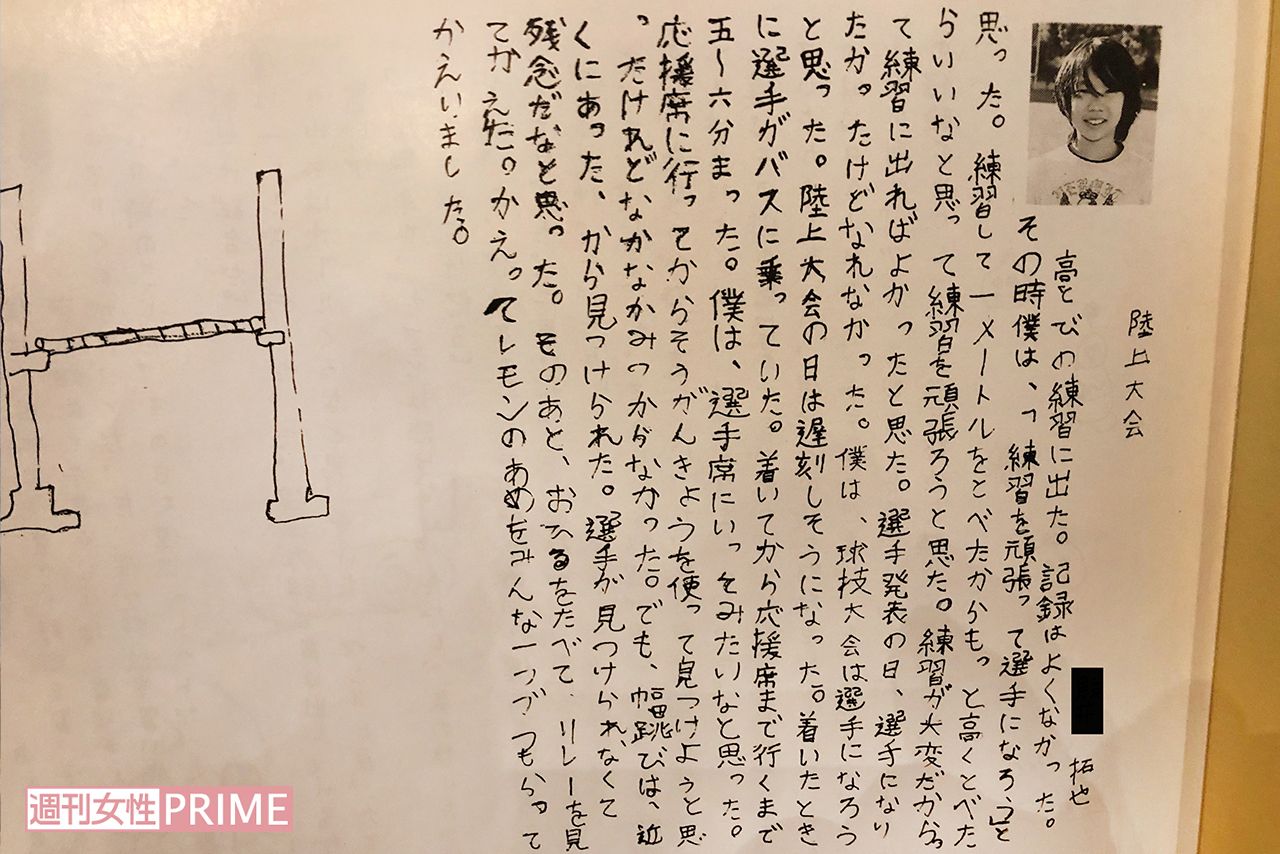 陸上大会
拓也
高とびの練習に出た。記録はよくなかった。
その時僕は、「練習を頑張って選手になろう」と
思った。練習して一メートルをとべたからもっと高くとべた
らいいなと思って練習を頑張ろうと思た。練習が大変だからっ
て練習に出ればよかったと思た。選手発表の日、選手になり
たかったけどなれなかった。僕は、球技大会は選手になろう
と思った。陸上大会の日は遅刻しそうになった。着いたとき
に選手がバスに乗っていた。着いてから応援席まで行くまで
五〜六分まった。僕は、選手席にいっそみたいなと思った。
応援席に行ってからそうがんきょうを使って見つけようと思
ったけれどなかなかみつからなかった。でも、幅跳びは、近
くにあった、から見つけられた。選手が見つけられなくて
残念だなと思った。そのあと、おひるをたべて、リレーを見
てかえた。かえってレモンのあめをみんな一つづつもらって
かえいました。
週刊女性PRIME